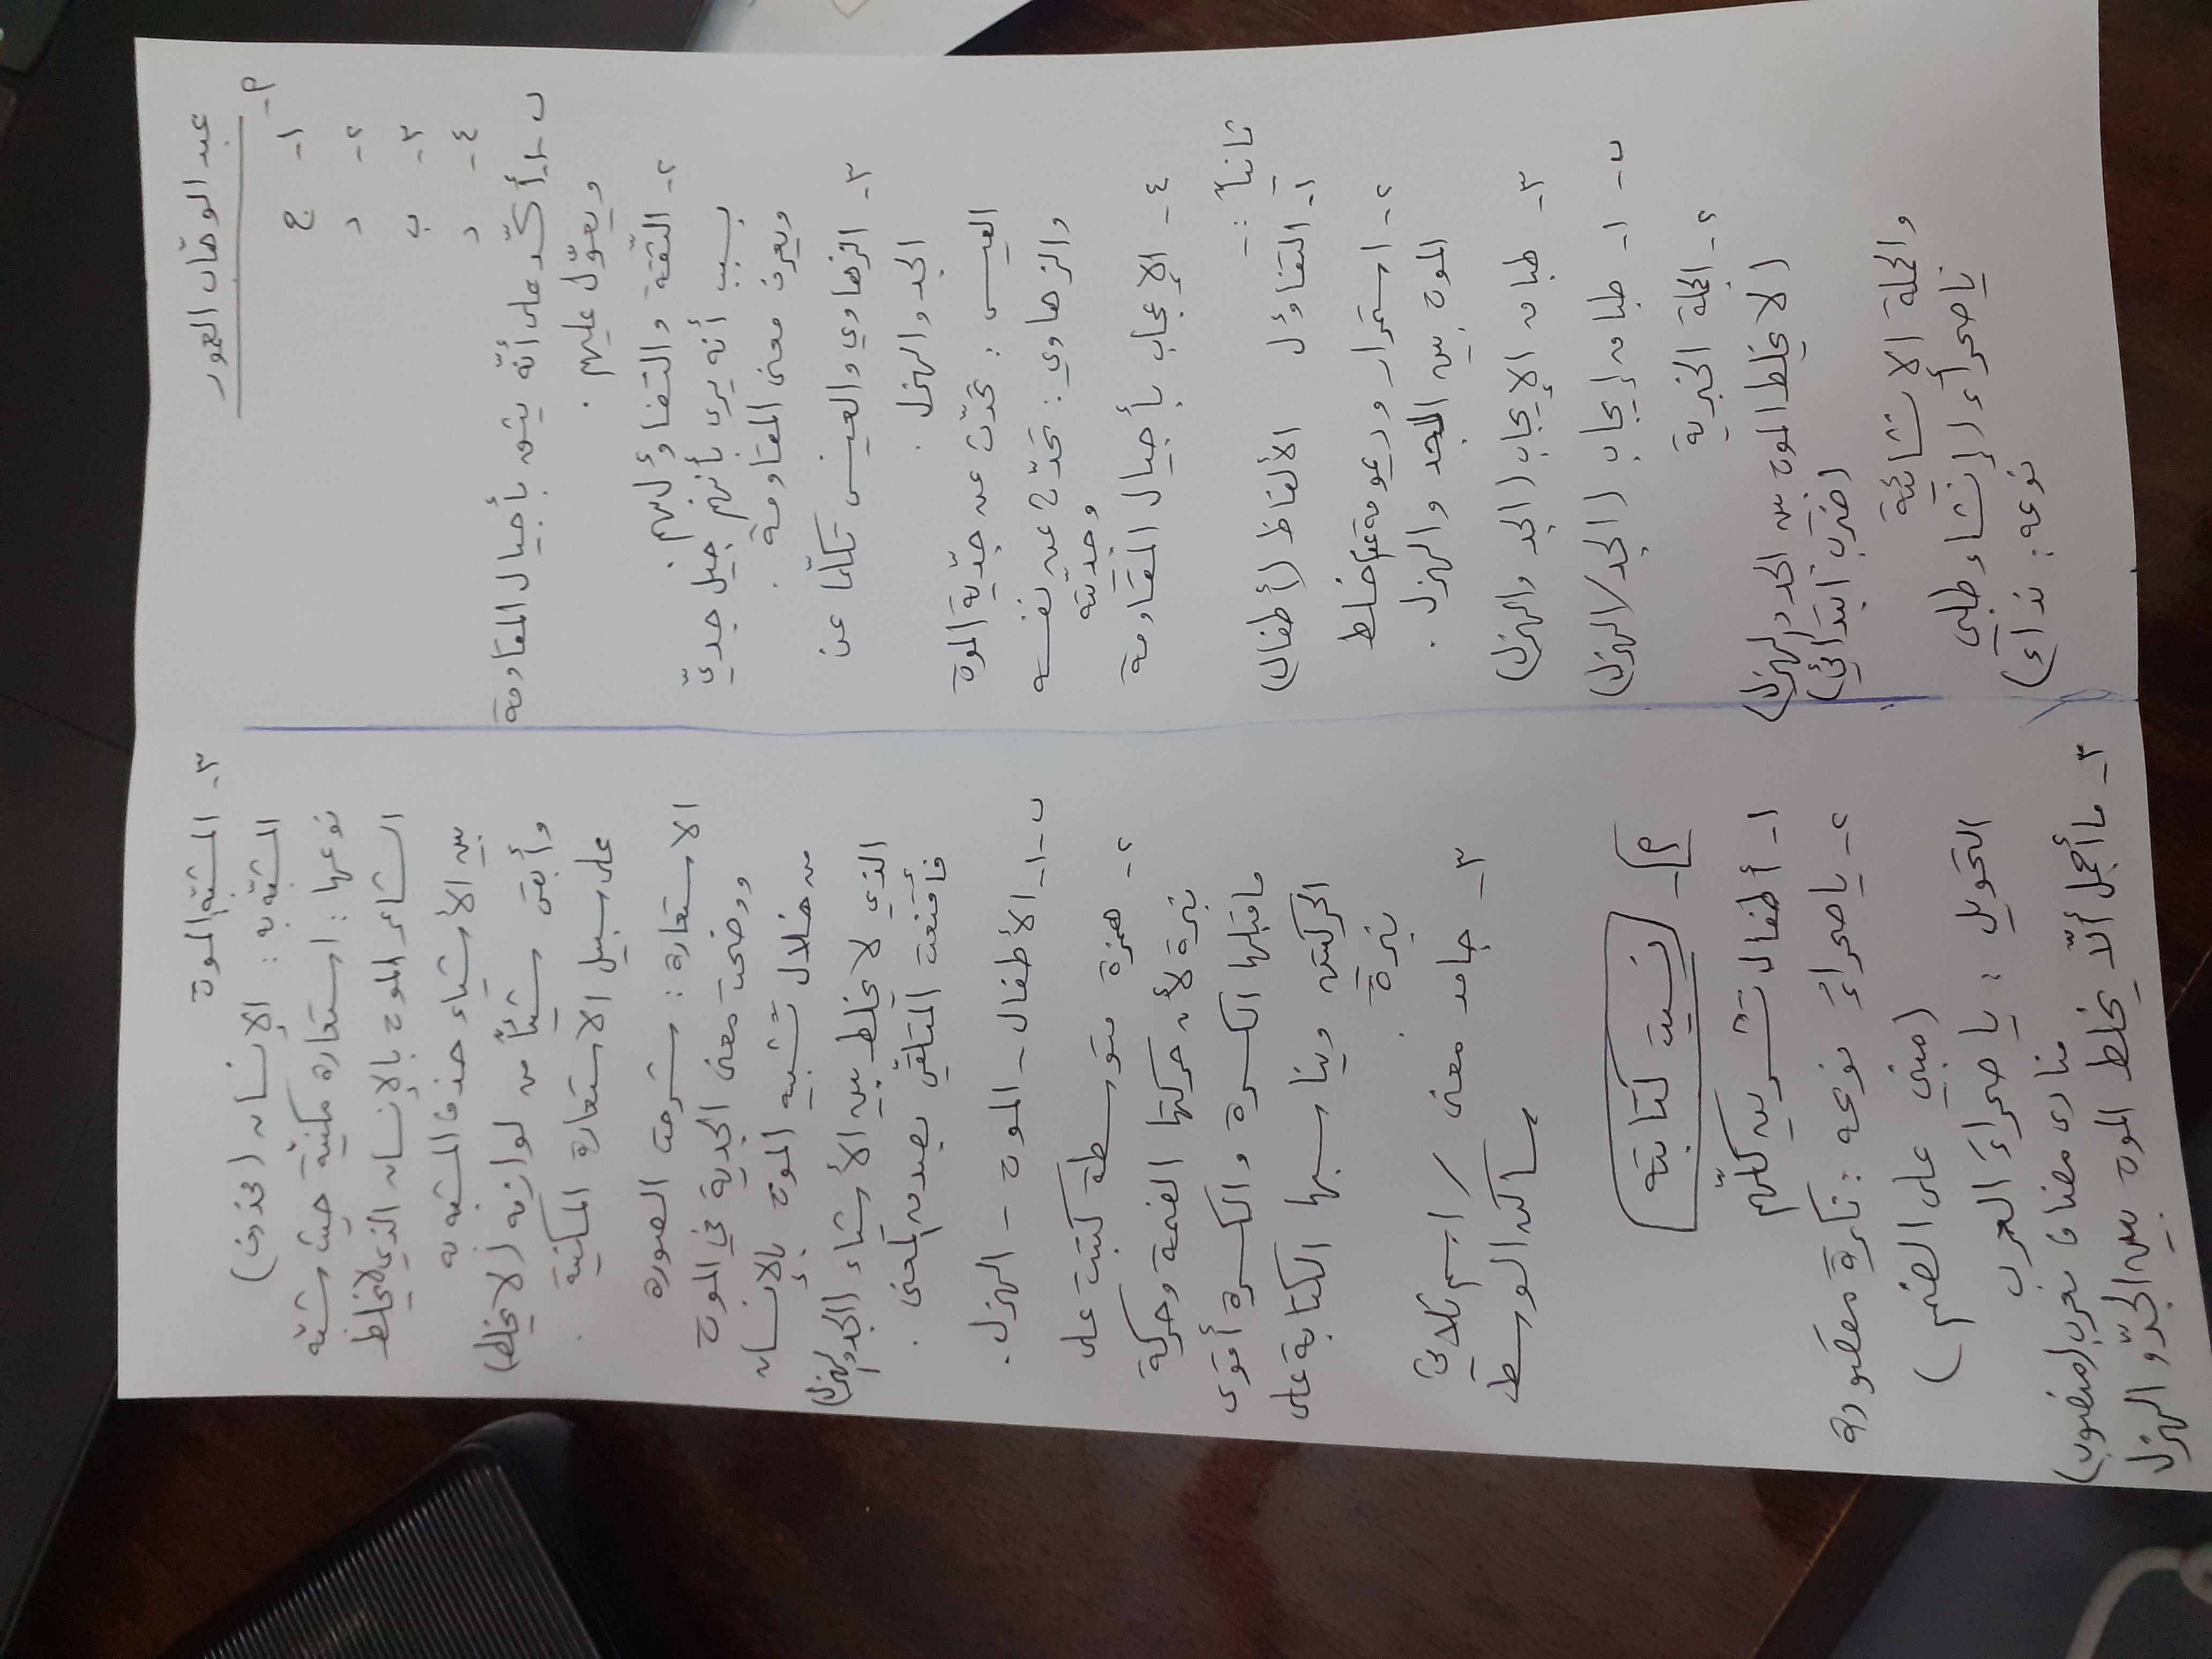 عبد الوهاب العمور
م-
١- ج
٢- د
٣- ب
٤- د
ب- ١- أكّد على أنّه يثق بأجيال المقاومة
ويعوّل عليهم.
٢- الثقة والتفاؤل بهم.
بسبب أنه يرى بأنهم جيل جديّ
ويعرف معنى المقاومة.
٣- الزهاوي والعيسى تكلّما عن
الجد والهزل.
العيسى: تحدّث عن جدّية الموت
والزهاوي: تحدّث عن نفسه
وجديته
٤- الإعجاب بأجيال المقاومة
ثانياً:-
١- التفاؤل الألفاظ (أطفال)
٢- استمرار وديمومة عدم خلط
الموت بين الجد والهزل.
٣- طباق الإيجاب (الجد والهزل)
ب- ١- طباق إيجاب (الجد/الهزل)
٢- الجملة الخبرية
(لا يخلط الموت بين الجد والهزل)
(ضرب: ابتدائي)
والجملة الانشائية
ياصحراء (إنشاء طلبي
نوعه: نداء)
٣- المشبّه: الموت
المشبّه به: الإنسان (محذوف)
نوعها: استعارة مكنيّة حيث شبّه
الشاعر الموت بالإنسان الذي لايخلط
بين الأشياء حذف المشبه به
وأبقى شيئاً من لوازمه (لا يخلط)
على سبيل الاستعارة المكنية.
الاستعارة: شرحت الصورة
ووضحت معنى الجدية في الموت
من خلال تشبيه الموت بالإنسان
الذي لا يخلط بين الأشياء (الجد والهزل)
فأقنعت المتلقّي بصدق المعنى.
ب- ١- الأطفال - الموت - الهزل.
٢- همزة متوسطة كتبت على
نبرة لأن حركتها الضمة وحركة
ماقبلها الكسرة والكسرة أقوى
الحركتين ويناسبها الكتابة على
نبرة.
٣- جامد معنى / اسم ثلاثي
ساكن الوسط
بنية كتابة
م-
١- أطفال تشرين كلّهم
٢- ياصحراءُ نوعه: نكرة مقصودة
(مبني على الضم)
التحويل: يا صحراءَ العرب
منادى مضاف معرب (منصوب)
٣- ما أجمل ألّا يخلط الموت بين الجدّ والهزل